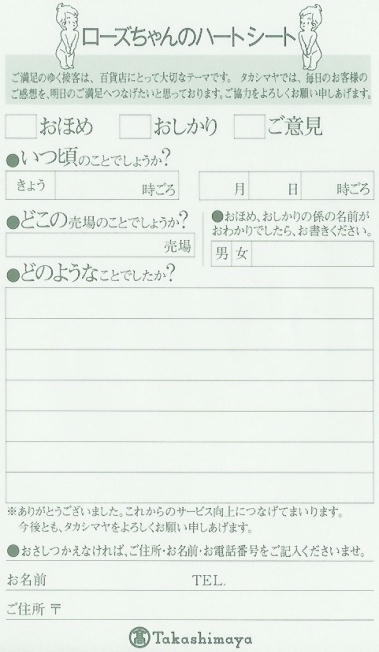 ローズちゃんのハートシート
ご満足のゆく接客は、百貨店にとって大切なテーマです。 タカシマヤでは、毎日のお客様の
ご感想を、明日のご満足へつなげたいと思っております。ご協力をよろしくお願い申しあげます。
おほめ おしかり ご意見
●いつ頃のことでしょうか?
きょう 時ごろ 月 日 時ごろ
●どこの売場のことでしょうか?
売場
●おほめ、おしかりの係の名前が
おわかりでしたら、お書きください。
男 女
●どのようなことでしたか?
※ありがとうございました。これからのサービス向上につなげてまいります。
今後とも、タカシマヤをよろしくお願い申しあげます。
●おさしつかえなければ、ご住所・お名前・お電話番号をご記入くださいませ。
お名前 TEL.
ご住所 〒
髙 Takashimaya